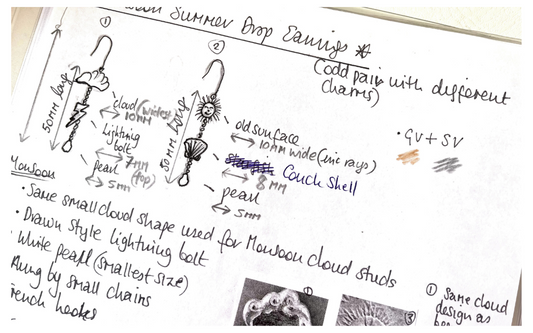 Summer Drop Earrings
(odd pair with different
charms)
①
②
50MM long
cloud (widest)
10MM
lightning
bolt
7MM
(top)
pearl
5MM
50MM long
old surface
10MM wide (inc rays)
Couch Shell
8MM
pearl
5MM
• GV + SV
Monsoon
• Same small cloud shape used for Monsoon cloud studs
• Drawn style lightning bolt
• White pearl (smallest size)
Hung by small chains
French hooks
①
③
① Same cloud
design as